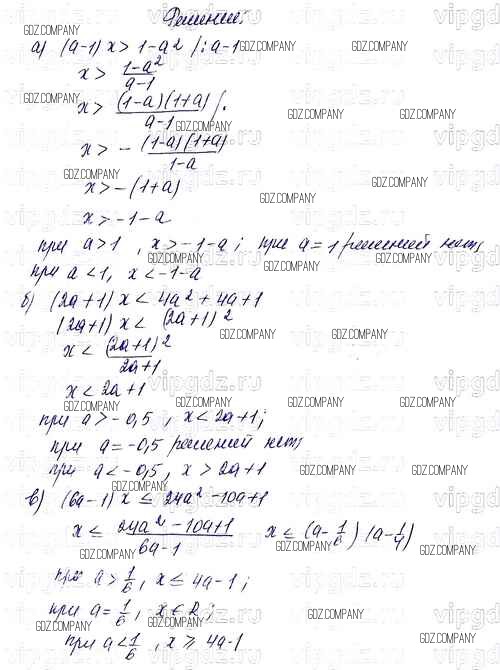 Решений
а) (a-1)x > 1-a² /: a-1
x > \frac{1-a²}{a-1}
x > \frac{(1-a)(1+a)}{a-1} /.
x > - \frac{(1-a)(1+a)}{1-a}
x > -(1+a)
x > -1-a
при a>1, x>-1-a; при a=1 решений нет;
при a<1, x<-1-a
б) (2a+1)x < 4a²+4a+1
(2a+1)x < (2a+1)²
x < \frac{(2a+1)²}{2a+1}
x < 2a+1
при a>-0,5, x<2a+1;
при a=-0,5 решений нет;
при a<-0,5, x>2a+1
в) (6a-1)x ≤ 24a²-10a+1
x ≤ \frac{24a²-10a+1}{6a-1} x ≤ (a-\frac{1}{6})(a-\frac{1}{4})
при a>\frac{1}{6}, x ≤ 4a-1;
при a=\frac{1}{6}, x∈R;
при a<\frac{1}{6}, x ≥ 4a-1
GDZ.COMPANY
vipgdz.ru